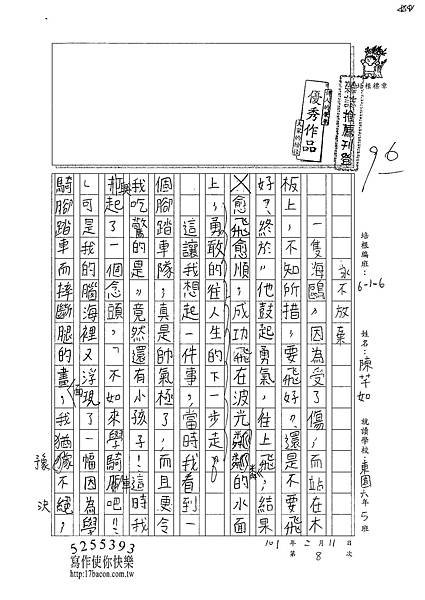 永不放棄
一隻海鷗，因為受了傷，而站在木
板上，不知所措，要飛好，還是不要飛
好？終於，他鼓起勇氣，往上飛，結果
愈飛愈順，成功飛在波光粼粼的水面
上，勇敢的往人生的下一步走。
這讓我想起一件事，當時我看到一
個腳踏車隊，真是帥氣極了，而且更令
我吃驚的是，竟然還有小孩子！這時我
興起了一個念頭，「不如來學騎車吧！！
」可是我的腦海裡又浮現了一幅因為學
騎腳踏車而摔斷腿的畫面，我猶豫不絕，
豫 決
培根編班：6-1-6
姓名：陳芊如
就讀學校：東園六年5班
101年2月11日
第8次
96
優秀作品
推薦刊登
培根標章
5255393
寫作使你快樂
http://17bacon.com.tw